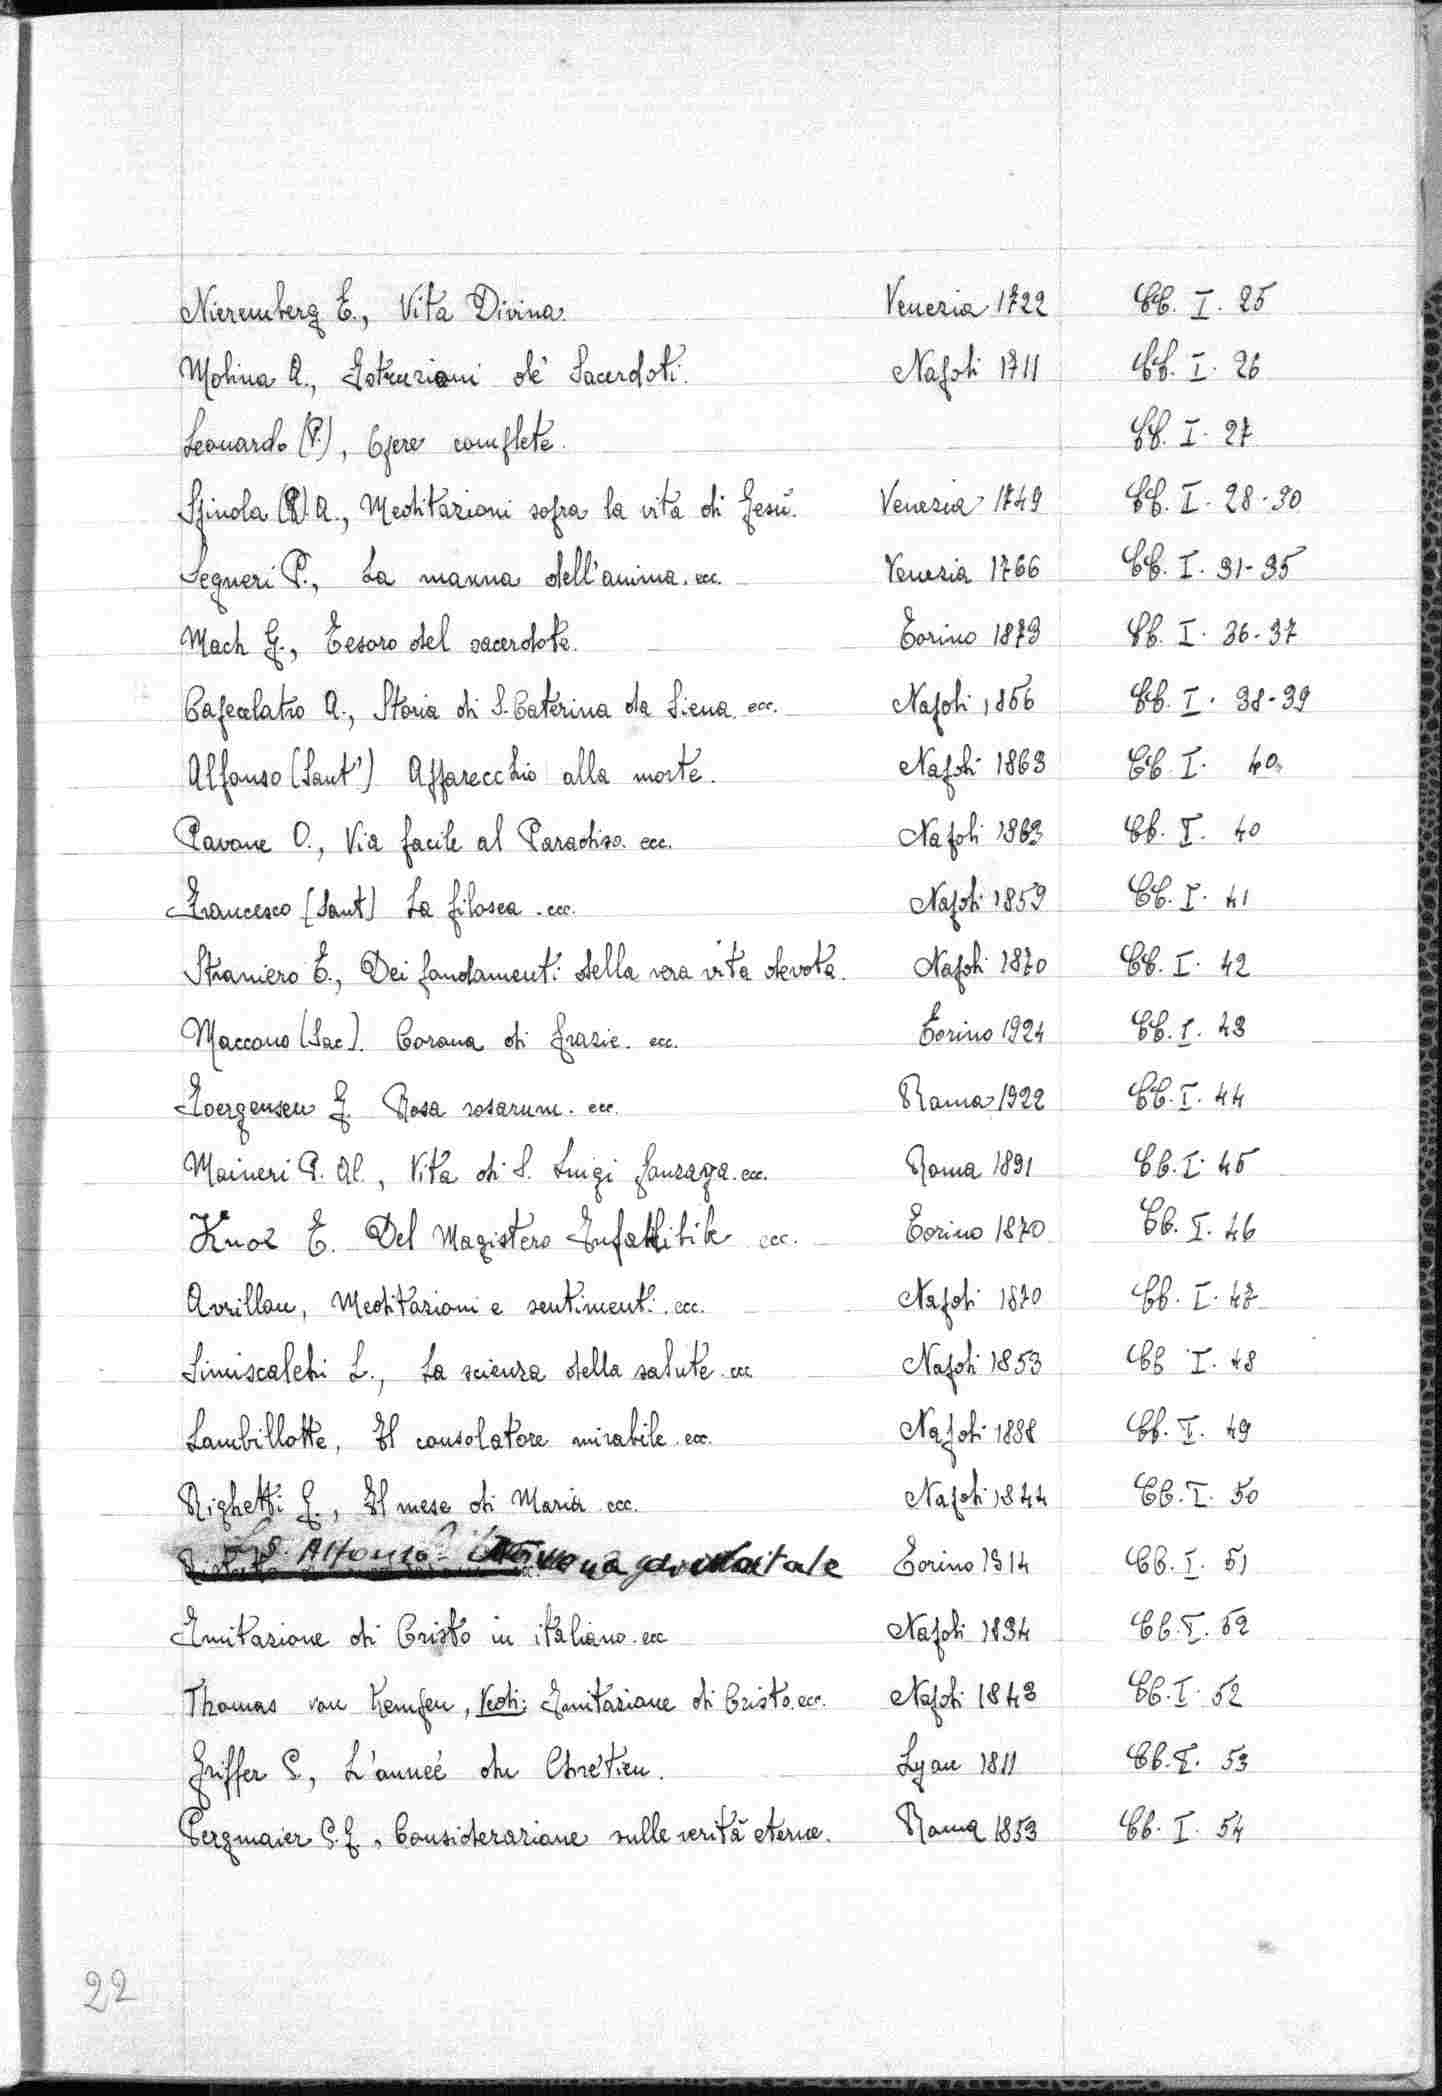 Nieremberg E., Vita Divina. Venezia 1722 CC. I. 25
Molina A., Istruzioni de' Sacerdoti. Napoli 1711 CC. I. 26
Leonardo (P.), Opere complete. CC. I. 27
Spinola (P.) A., Meditazioni sopra la vita di Gesù. Venezia 1749 CC. I. 28-30
Segneri P., La manna dell'anima. ecc. Venezia 1766 CC. I. 31-35
Mach G., Tesoro del sacerdote. Torino 1873 CC. I. 36-37
Capecelatro A., Storia di S. Caterina da Siena. ecc. Napoli 1856 CC. I. 38-39
Alfonso (Sant') Apparecchio alla morte. Napoli 1863 CC. I. 40
Pavone O., Via facile al Paradiso. ecc. Napoli 1863 CC. I. 40
Francesco (Sant) La filosea. ecc. Napoli 1859 CC. I. 41
Straniero E., Dei fondamenti della vera vita devota. Napoli 1870 CC. I. 42
Maccono (Sac). Corona di Grazie. ecc. Torino 1924 CC. I. 43
Joergensen G. Rosa rosarum. ecc. Roma 1922 CC. I. 44
Maineri P. Al., Vita di S. Luigi Gonzaga. ecc. Roma 1891 CC. I. 45
Knox T. Del Magistero Infallibile ecc. Torino 1870 CC. I. 46
Avrillon, Meditazioni e sentimenti. ecc. Napoli 1870 CC. I. 47
Siniscalchi L., La scienza della salute. ecc Napoli 1853 CC I. 48
Lambillotte, Il consolatore mirabile. ecc. Napoli 1888 CC. I. 49
Righetti G., Il mese di Maria. ecc. Napoli 1844 CC. I. 50
S. Alfonso - Torino 1914 CC. I. 51
Imitazione di Cristo in italiano. ecc Napoli 1834 CC. I. 52
Thomas von Kempen, Vedi: Imitazione di Cristo. ecc. Napoli 1843 CC. I. 52
Griffet P., L'anneé du Chrétien. Lyon 1811 CC. I. 53
Pergmaier P. G., Considerazione sulle verità eterne. Roma 1853 CC. I. 54
22